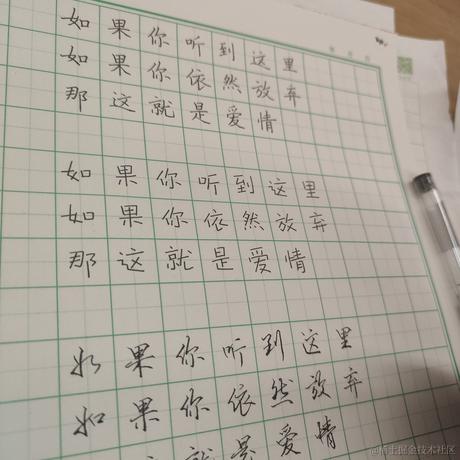 如果你听到这里
如果你依然放弃
那这就是爱情
如果你听到这里
如果你依然放弃
那这就是爱情
如果你听到这里
如果你依然放弃
这就是爱情
@稀土掘金技术社区